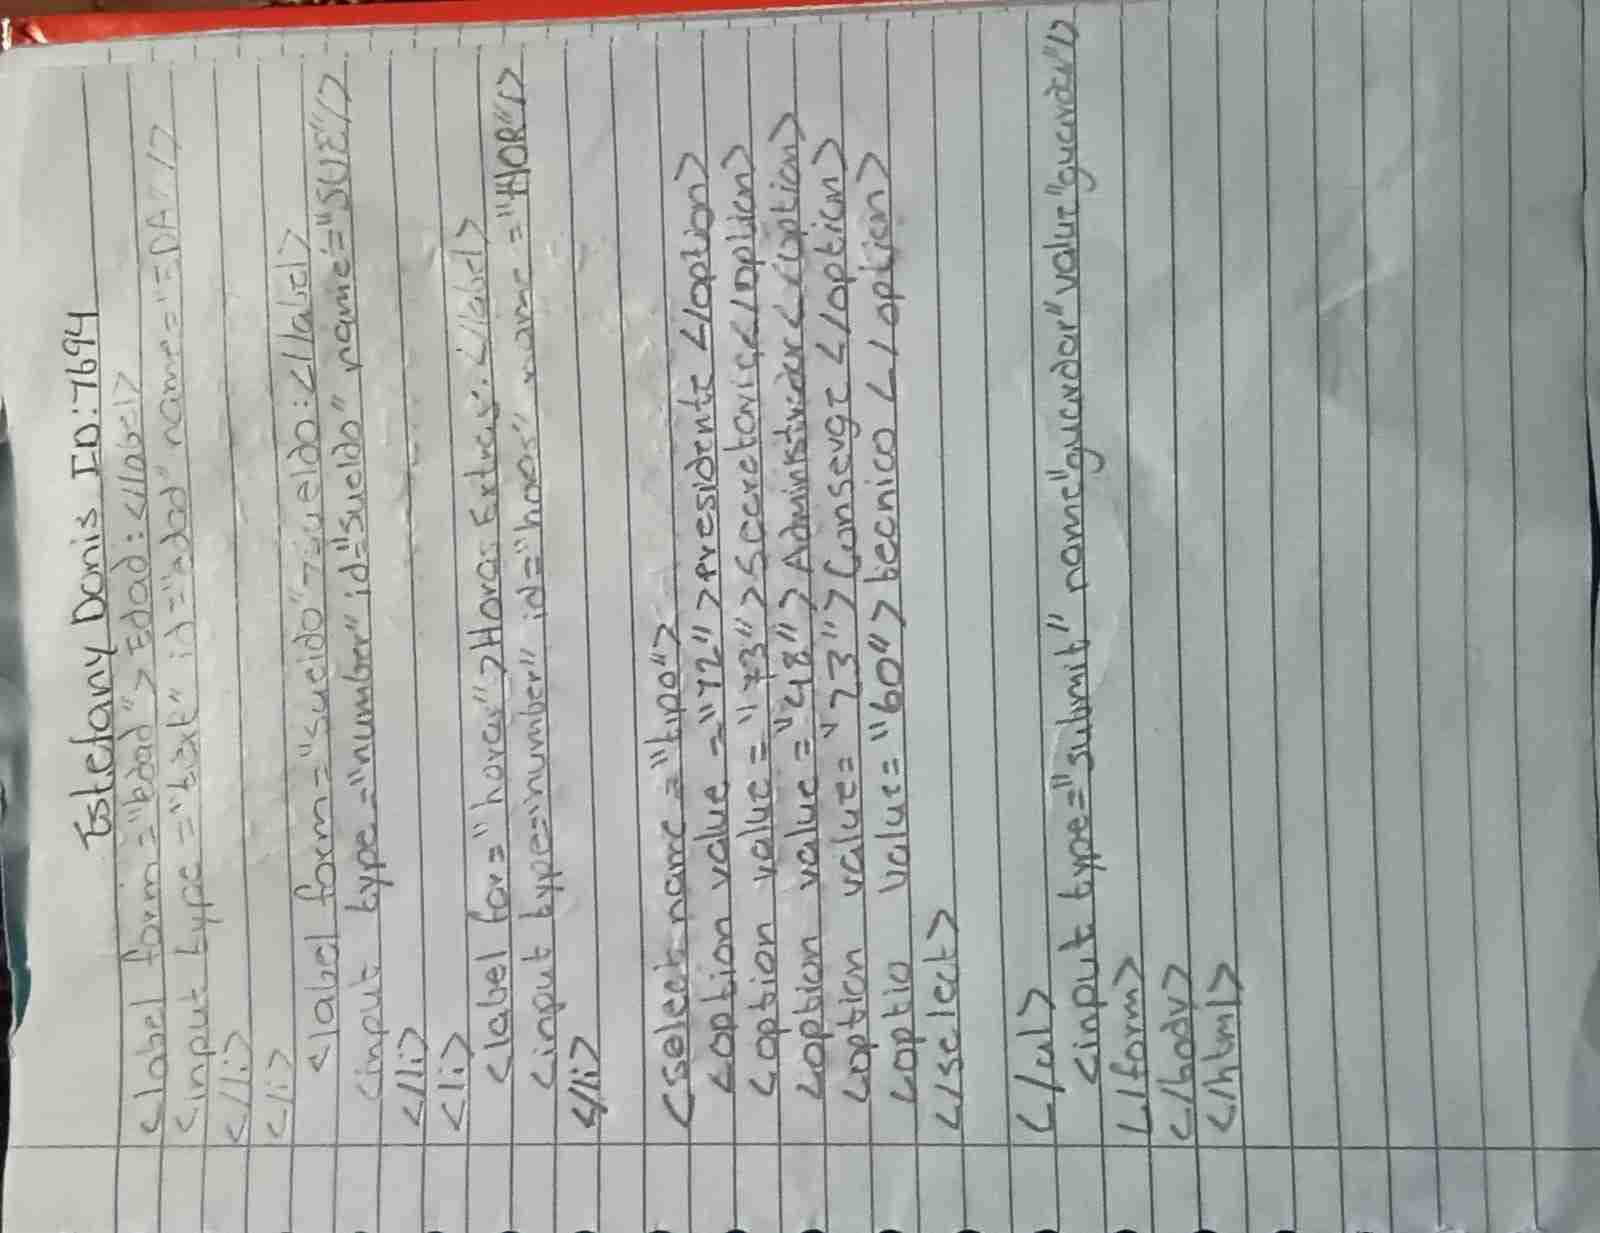 Estefany Donis ID:7694
<label form="edad">Edad:</label>
<input type="text" id="edad" name="EDA"/>
</li>
<li>
<label form="sueldo">sueldo:</label>
<input type="number" id="sueldo" name="SUE"/>
</li>
<li>
<label for="horas">Horas Extras:</label>
<input type="number" id="horas" name="HOR"/>
</li>
<select name="tipo">
<option value="72">presidente</option>
<option value="73">Secretaria</option>
<option value="48">Administrador</option>
<option value="23">Conserge</option>
<optio value="60">tecnico</option>
</select>
</ul>
<input type="submit" name"guardar" value"guardar"/>
</form>
</body>
</html>